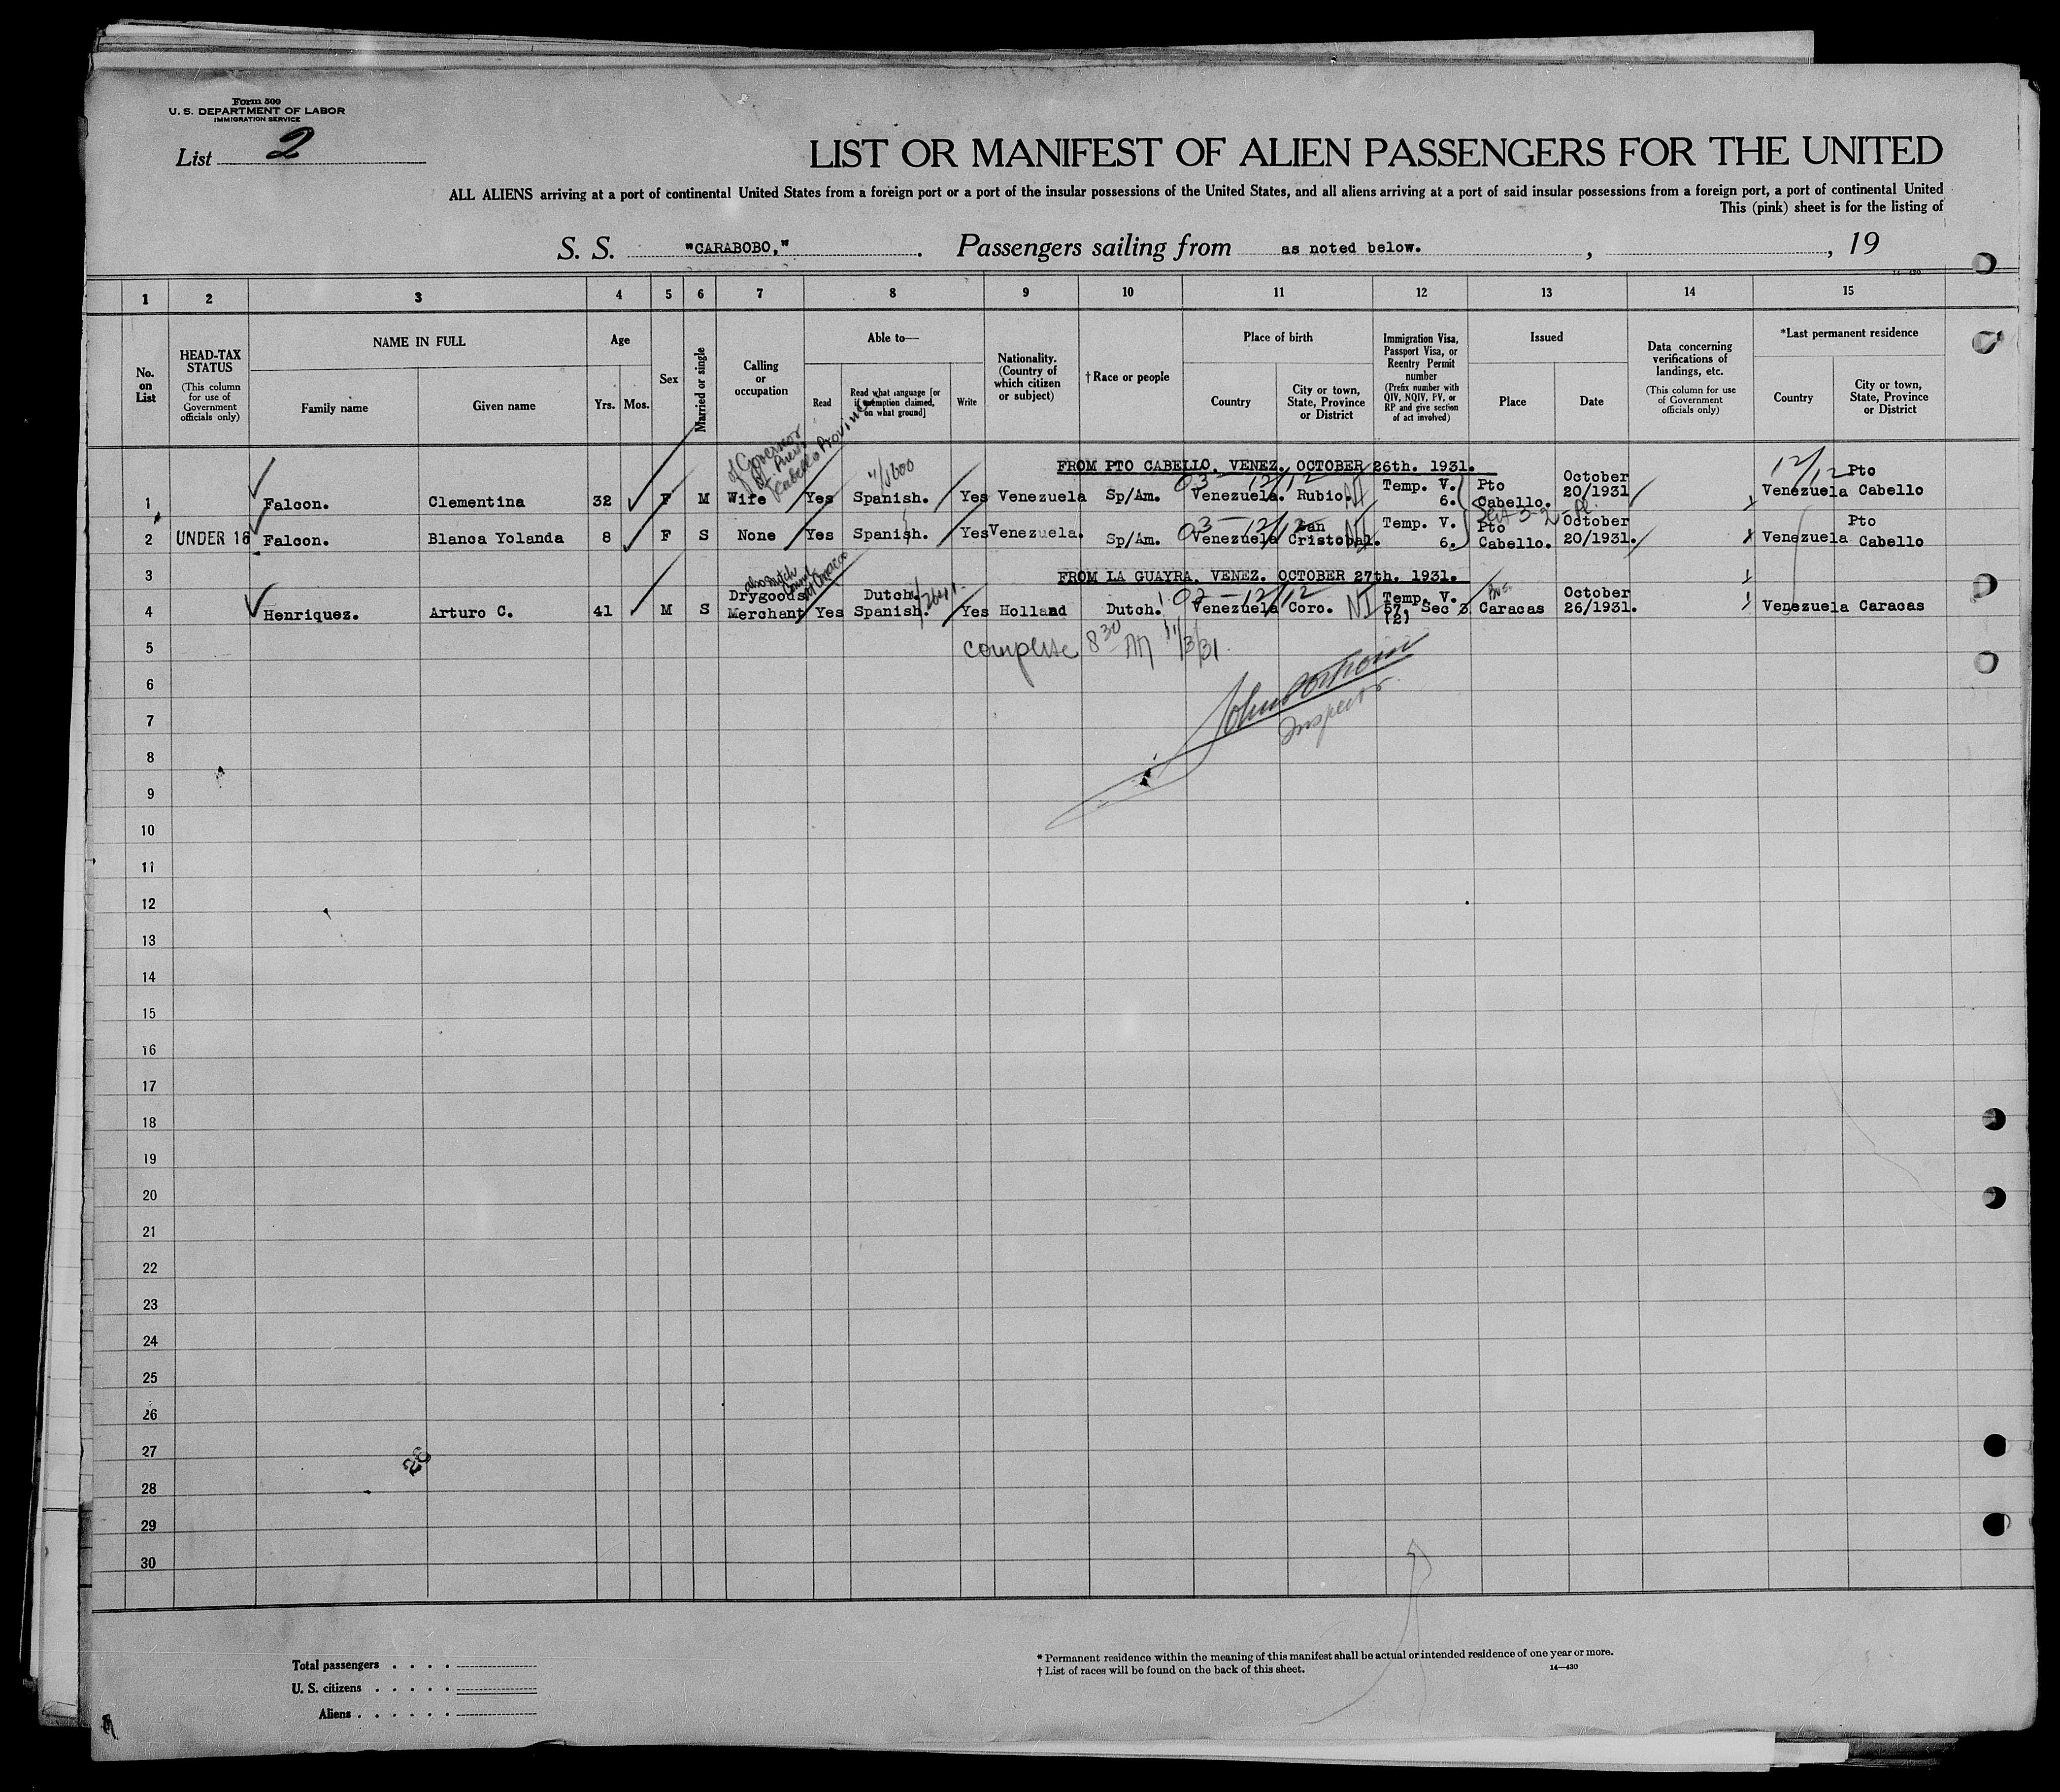 Form 500
U. S. DEPARTMENT OF LABOR
IMMIGRATION SERVICE
List 2
LIST OR MANIFEST OF ALIEN PASSENGERS FOR THE UNITED
ALL ALIENS arriving at a port of continental United States from a foreign port or a port of the insular possessions of the United States, and all aliens arriving at a port of said insular possessions from a foreign port, a port of continental United
This (pink) sheet is for the listing of
S. S. "CARABOBO," . Passengers sailing from as noted below. , , 19
14—430
1 2 3 4 5 6 7 8 9 10 11 12 13 14 15
No. on List
HEAD-TAX STATUS
(This column for use of Government officials only)
NAME IN FULL
Family name
Given name
Age
Yrs. Mos.
Sex
Married or single
Calling or occupation
Able to—
Read
Read what language [or if exemption claimed, on what ground]
Write
Nationality. (Country of which citizen or subject)
†Race or people
Place of birth
Country
City or town, State, Province or District
Immigration Visa, Passport Visa, or Reentry Permit number
(Prefix number with QIV, NQIV, PV, or RP and give section of act involved)
Issued
Place
Date
Data concerning verifications of landings, etc.
(This column for use of Government officials only)
*Last permanent residence
Country
City or town, State, Province or District
of Governor of
Cabello Province
FROM PTO CABELLO, VENEZ. OCTOBER 26th. 1931.
12/12
03-12/12
1 Falcon. Clementina 32 F M Wife Yes Spanish. Yes Venezuela Sp/Am. Venezuela. Rubio. NI Temp. V. 6. Pto Cabello. October 20/1931 Venezuela Pto Cabello
03-12/12
2 UNDER 16 Falcon. Blanca Yolanda 8 F S None Yes Spanish. Yes Venezuela. Sp/Am. Venezuela San Cristobal. NI Temp. V. 6. Pto Cabello. October 20/1931. Venezuela Pto Cabello
3 FROM LA GUAYRA, VENEZ. OCTOBER 27th. 1931.
also Dutch Consul at Caracas
02-12/12
4 Henriquez. Arturo C. 41 M S Drygoods Merchant Yes Dutch. Spanish. Yes Holland Dutch. Venezuela Coro. NI Temp. V. 57, Sec 3 (2) Caracas October 26/1931. Venezuela Caracas
5 complete 8 30 AM 11/3/31
6
7 Inspector
8
9
10
11
12
13
14
15
16
17
18
19
20
21
22
23
24
25
26
27
28
29
30
Total passengers . . . .
U. S. citizens . . . . .
Aliens . . . . . .
* Permanent residence within the meaning of this manifest shall be actual or intended residence of one year or more.
† List of races will be found on the back of this sheet.
14—430